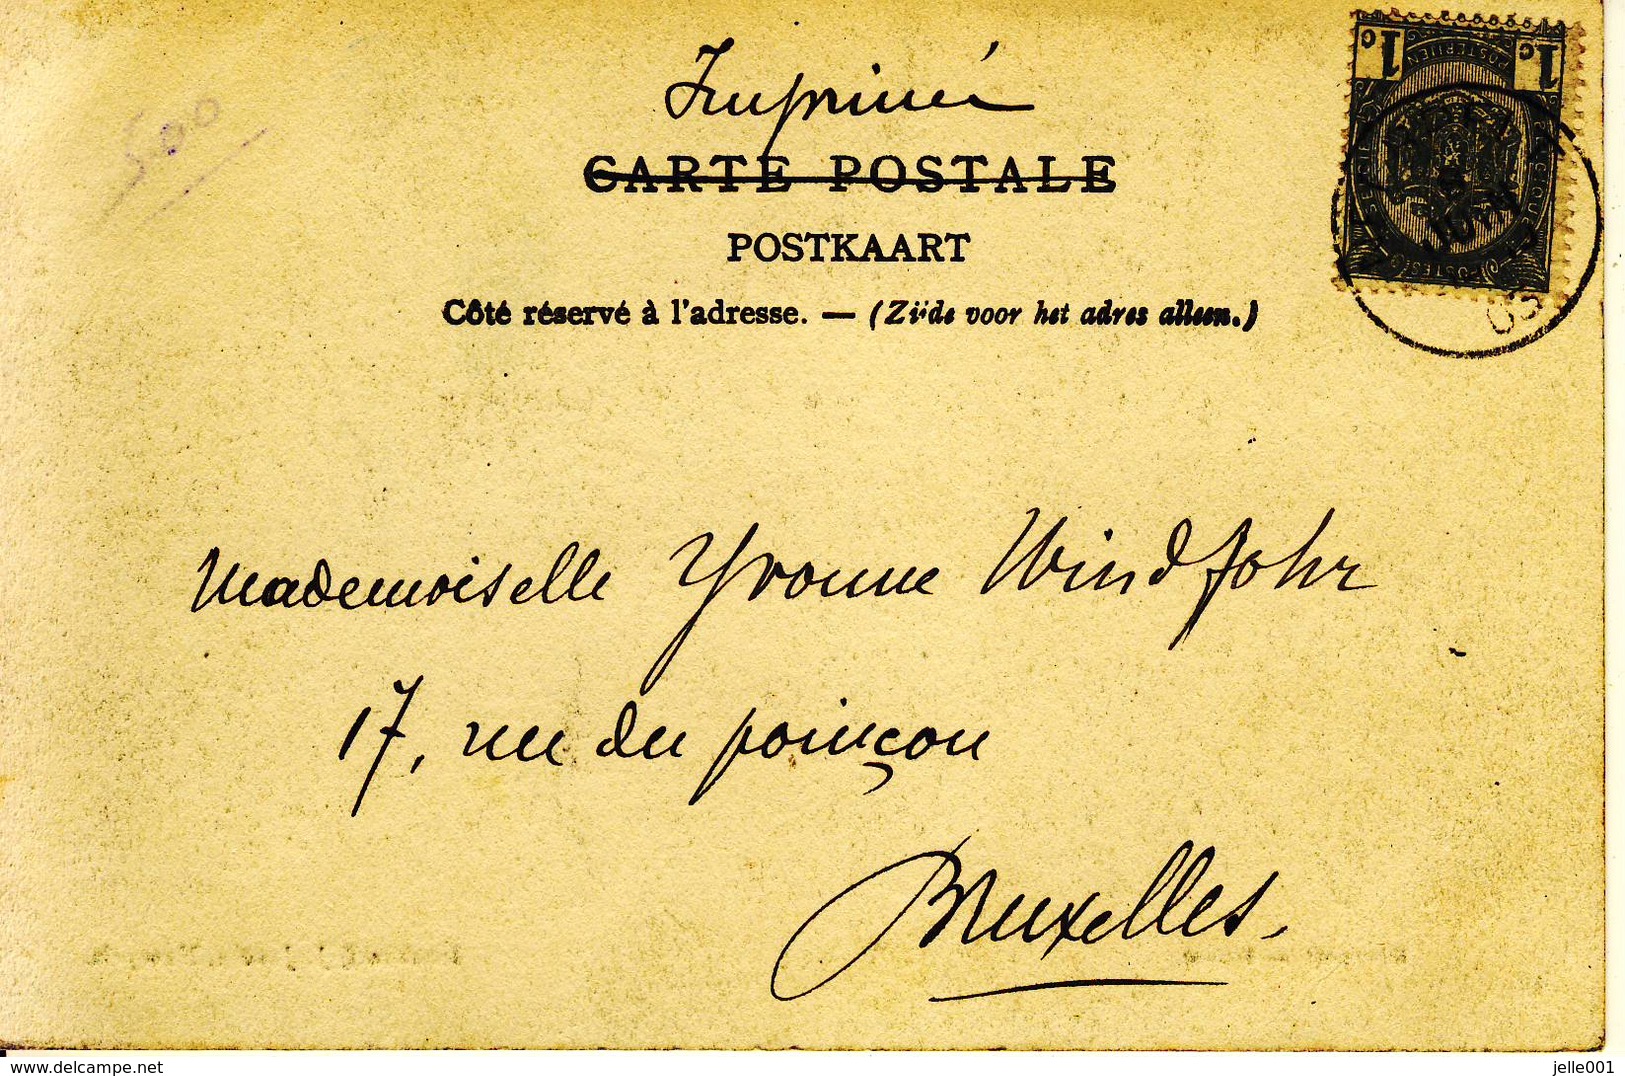 500
Imprimé
CARTE POSTALE
POSTKAART
Côté réservé à l'adresse. — (Zijde voor het adres alleen.)
1c 1c
POSTERIJEN
POSTES
03
Mademoiselle Yvonne Windfohr
17, rue du poinçon
Bruxelles.
www.delcampe.net
jelle001